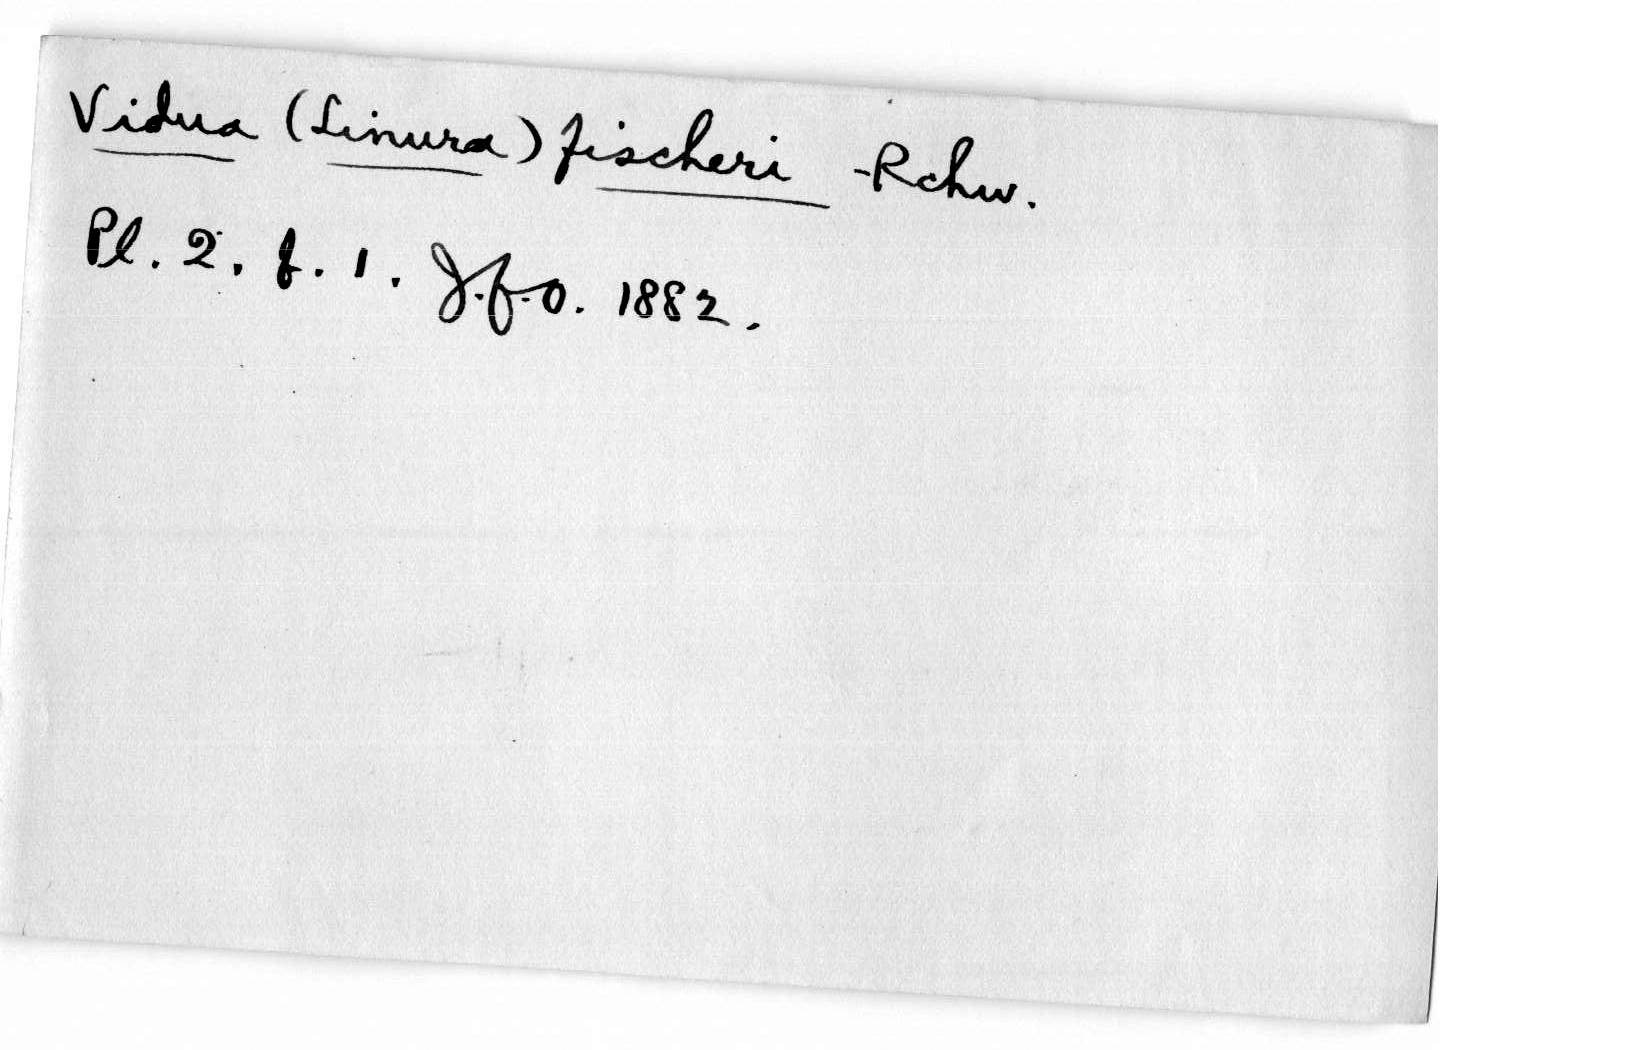 Vidua (Linura) fischeri - Rchw.
Pl. 2. f. 1. J.f.O. 1882.